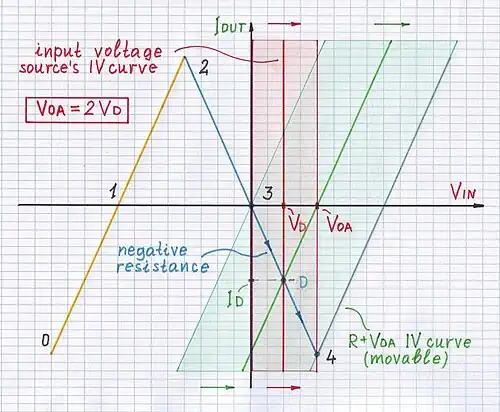 IOUT
input voltage
source's IV curve
2
VOA = 2 VD
1
3
VIN
VD
VOA
negative
resistance
ID
D
0
4
R+VOA IV curve
(movable)